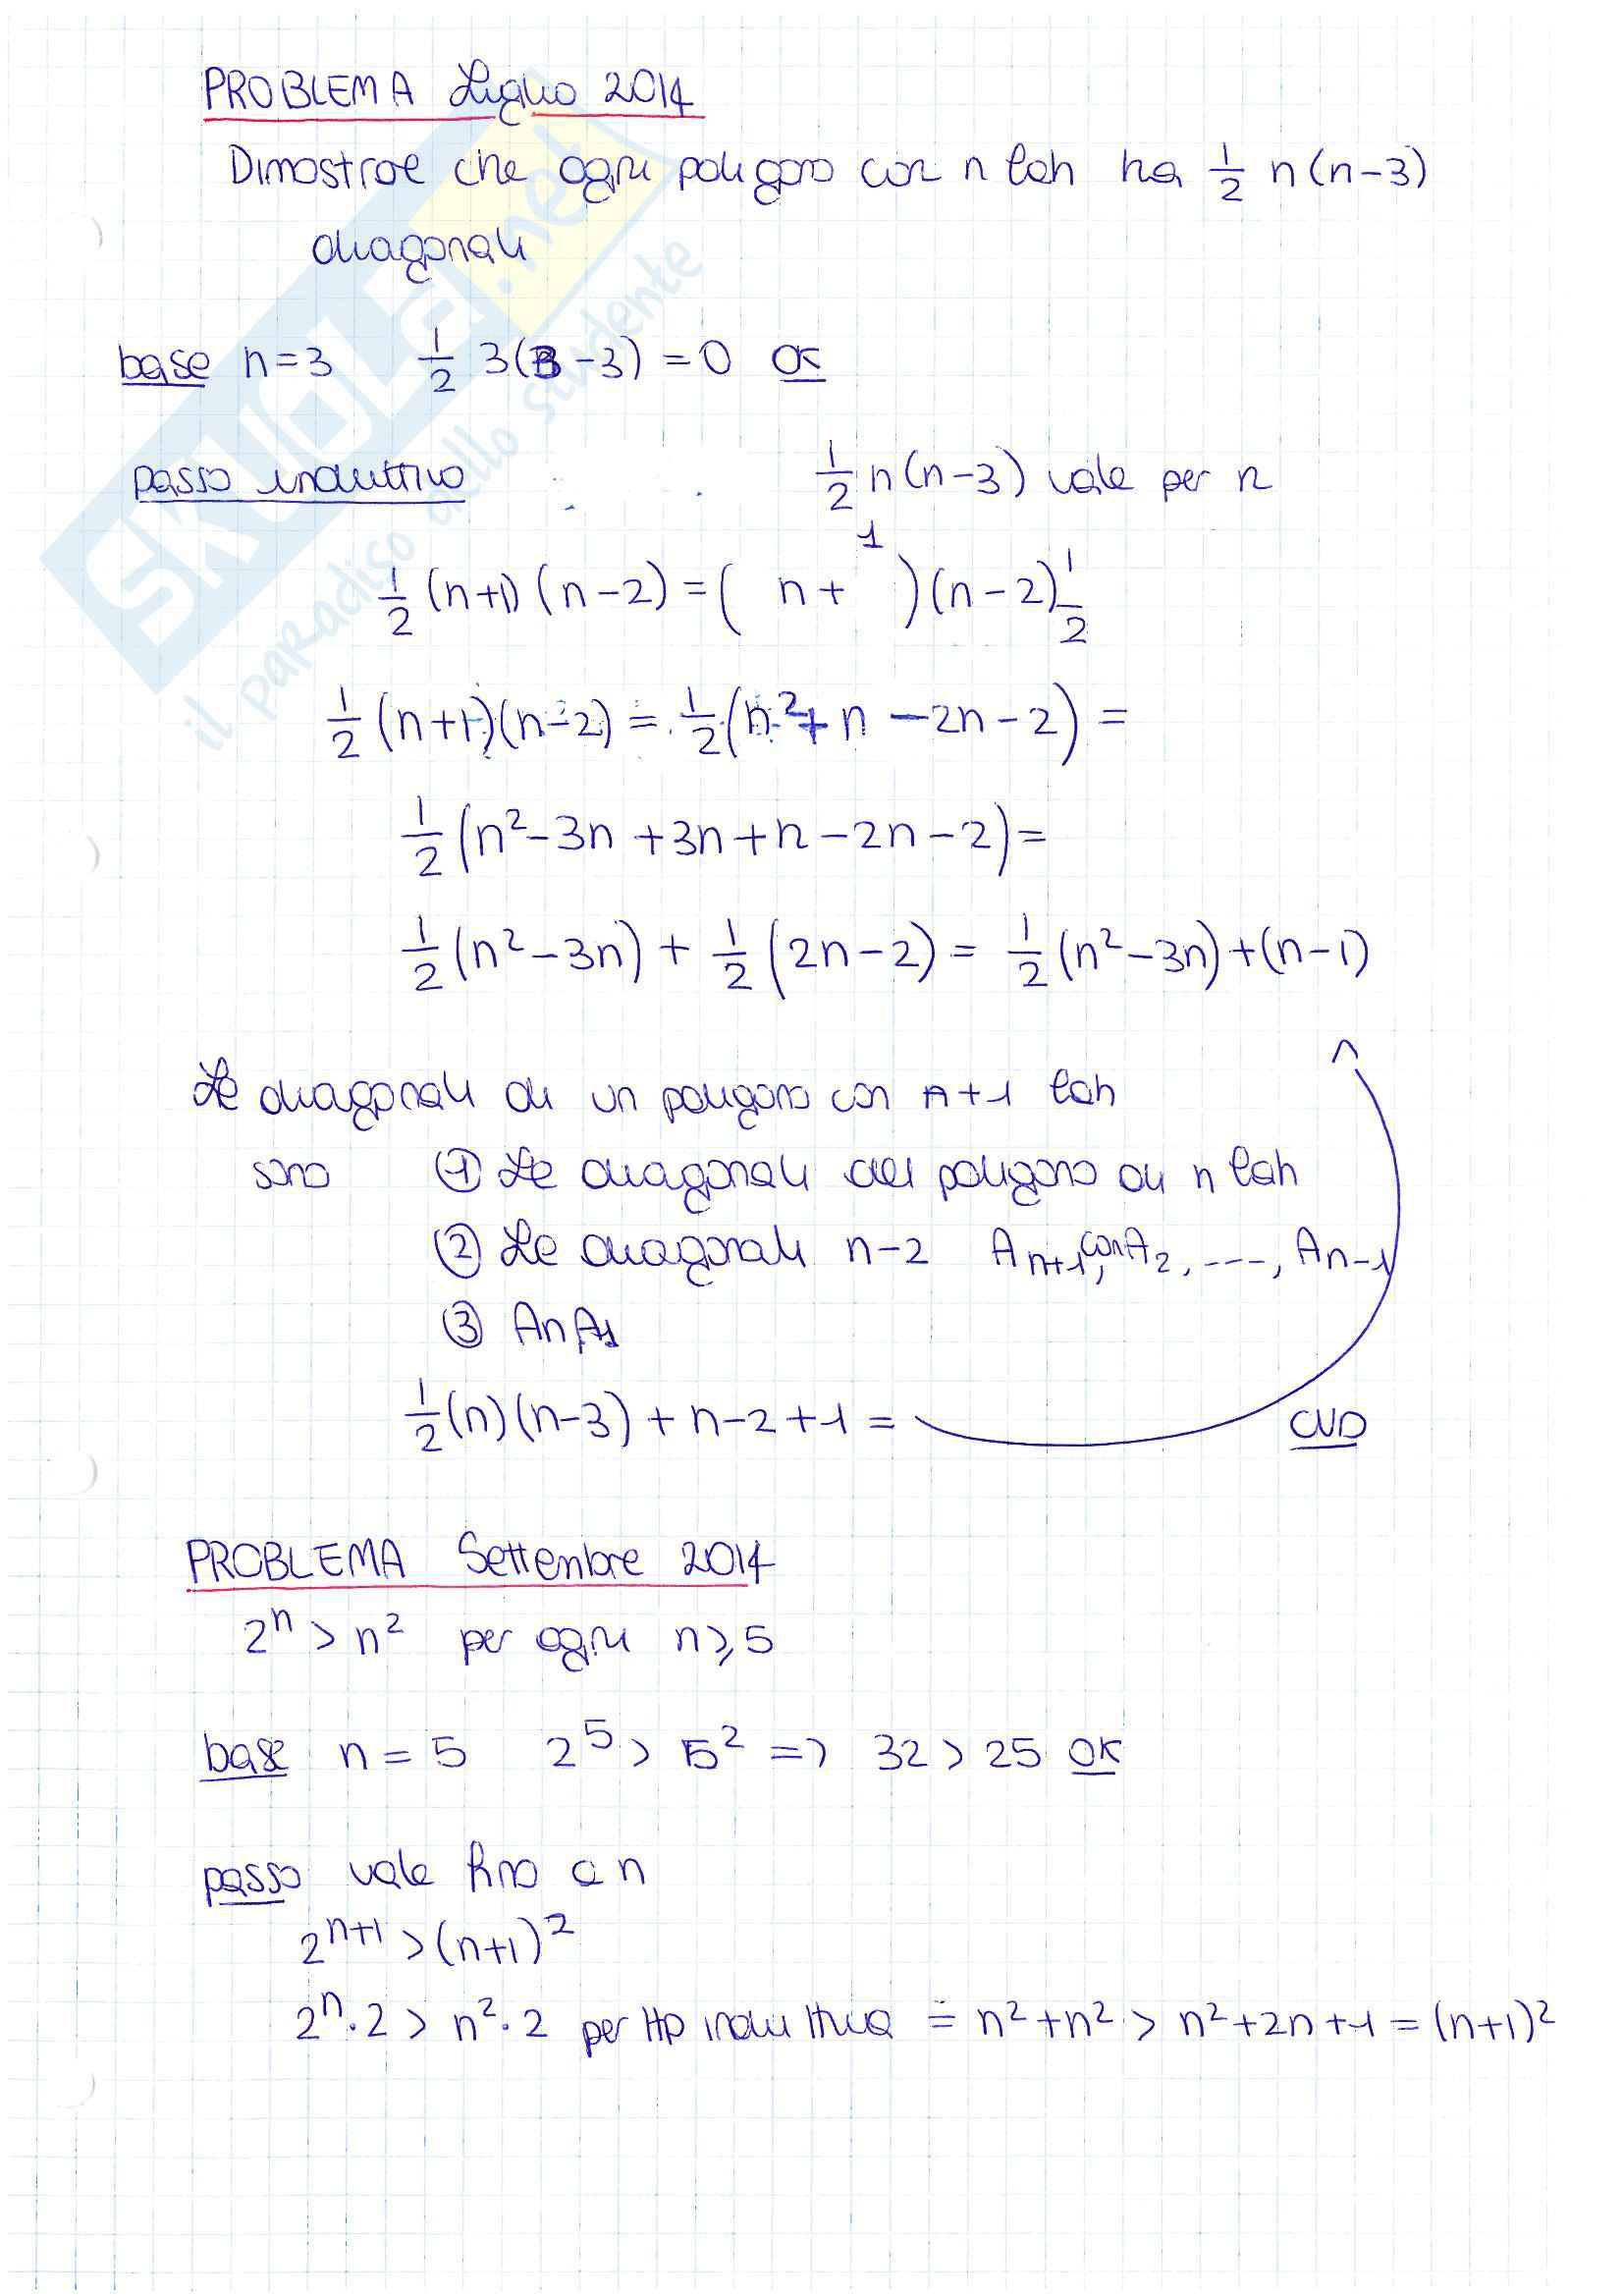 PROBLEMA Luglio 2014
Dimostrare che ogni poligono con n lati ha 1/2 n(n-3)
diagonali
base n=3 1/2 3(3-3)=0 OK
passo induttivo 1/2 n(n-3) vale per n
1/2 (n+1)(n-2) = ( n+1 )(n-2) 1/2
1/2 (n+1)(n-2) = 1/2 (n²+n-2n-2) =
1/2 (n²-3n+3n+n-2n-2) =
1/2 (n²-3n) + 1/2 (2n-2) = 1/2 (n²-3n)+(n-1)
Le diagonali di un poligono con n+1 lati
sono ① Le diagonali del poligono di n lati
② Le diagonali n-2 Aₙ₊₁, con A₂, ----, Aₙ₋₁
③ AₙA₁
1/2 (n)(n-3) + n-2+1 =
CVD
PROBLEMA Settembre 2014
2ⁿ > n² per ogni n≥5
base n=5 2⁵ > 5² => 32 > 25 OK
passo vale fino a n
2ⁿ⁺¹ > (n+1)²
2ⁿ·2 > n²·2 per Hp induttiva = n²+n² > n²+2n+1 = (n+1)²
SKUOLA.net
il paradiso dello studente